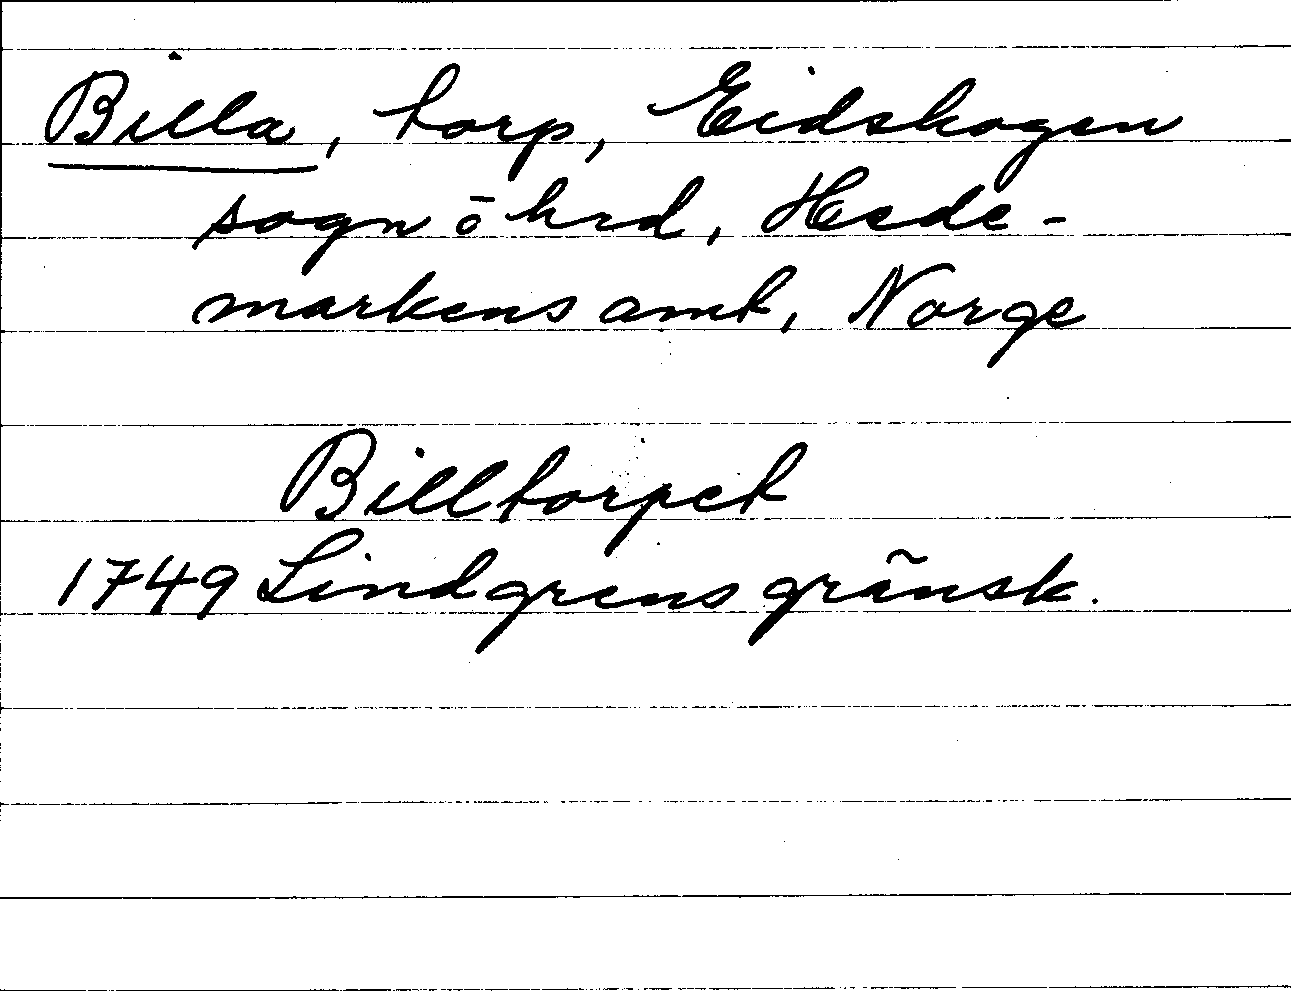 Billa, torp, Eidskogen
sogn ö hrd, Hede-
markens amt, Norge
Billtorpet
1749 Lindgrens gränsk.